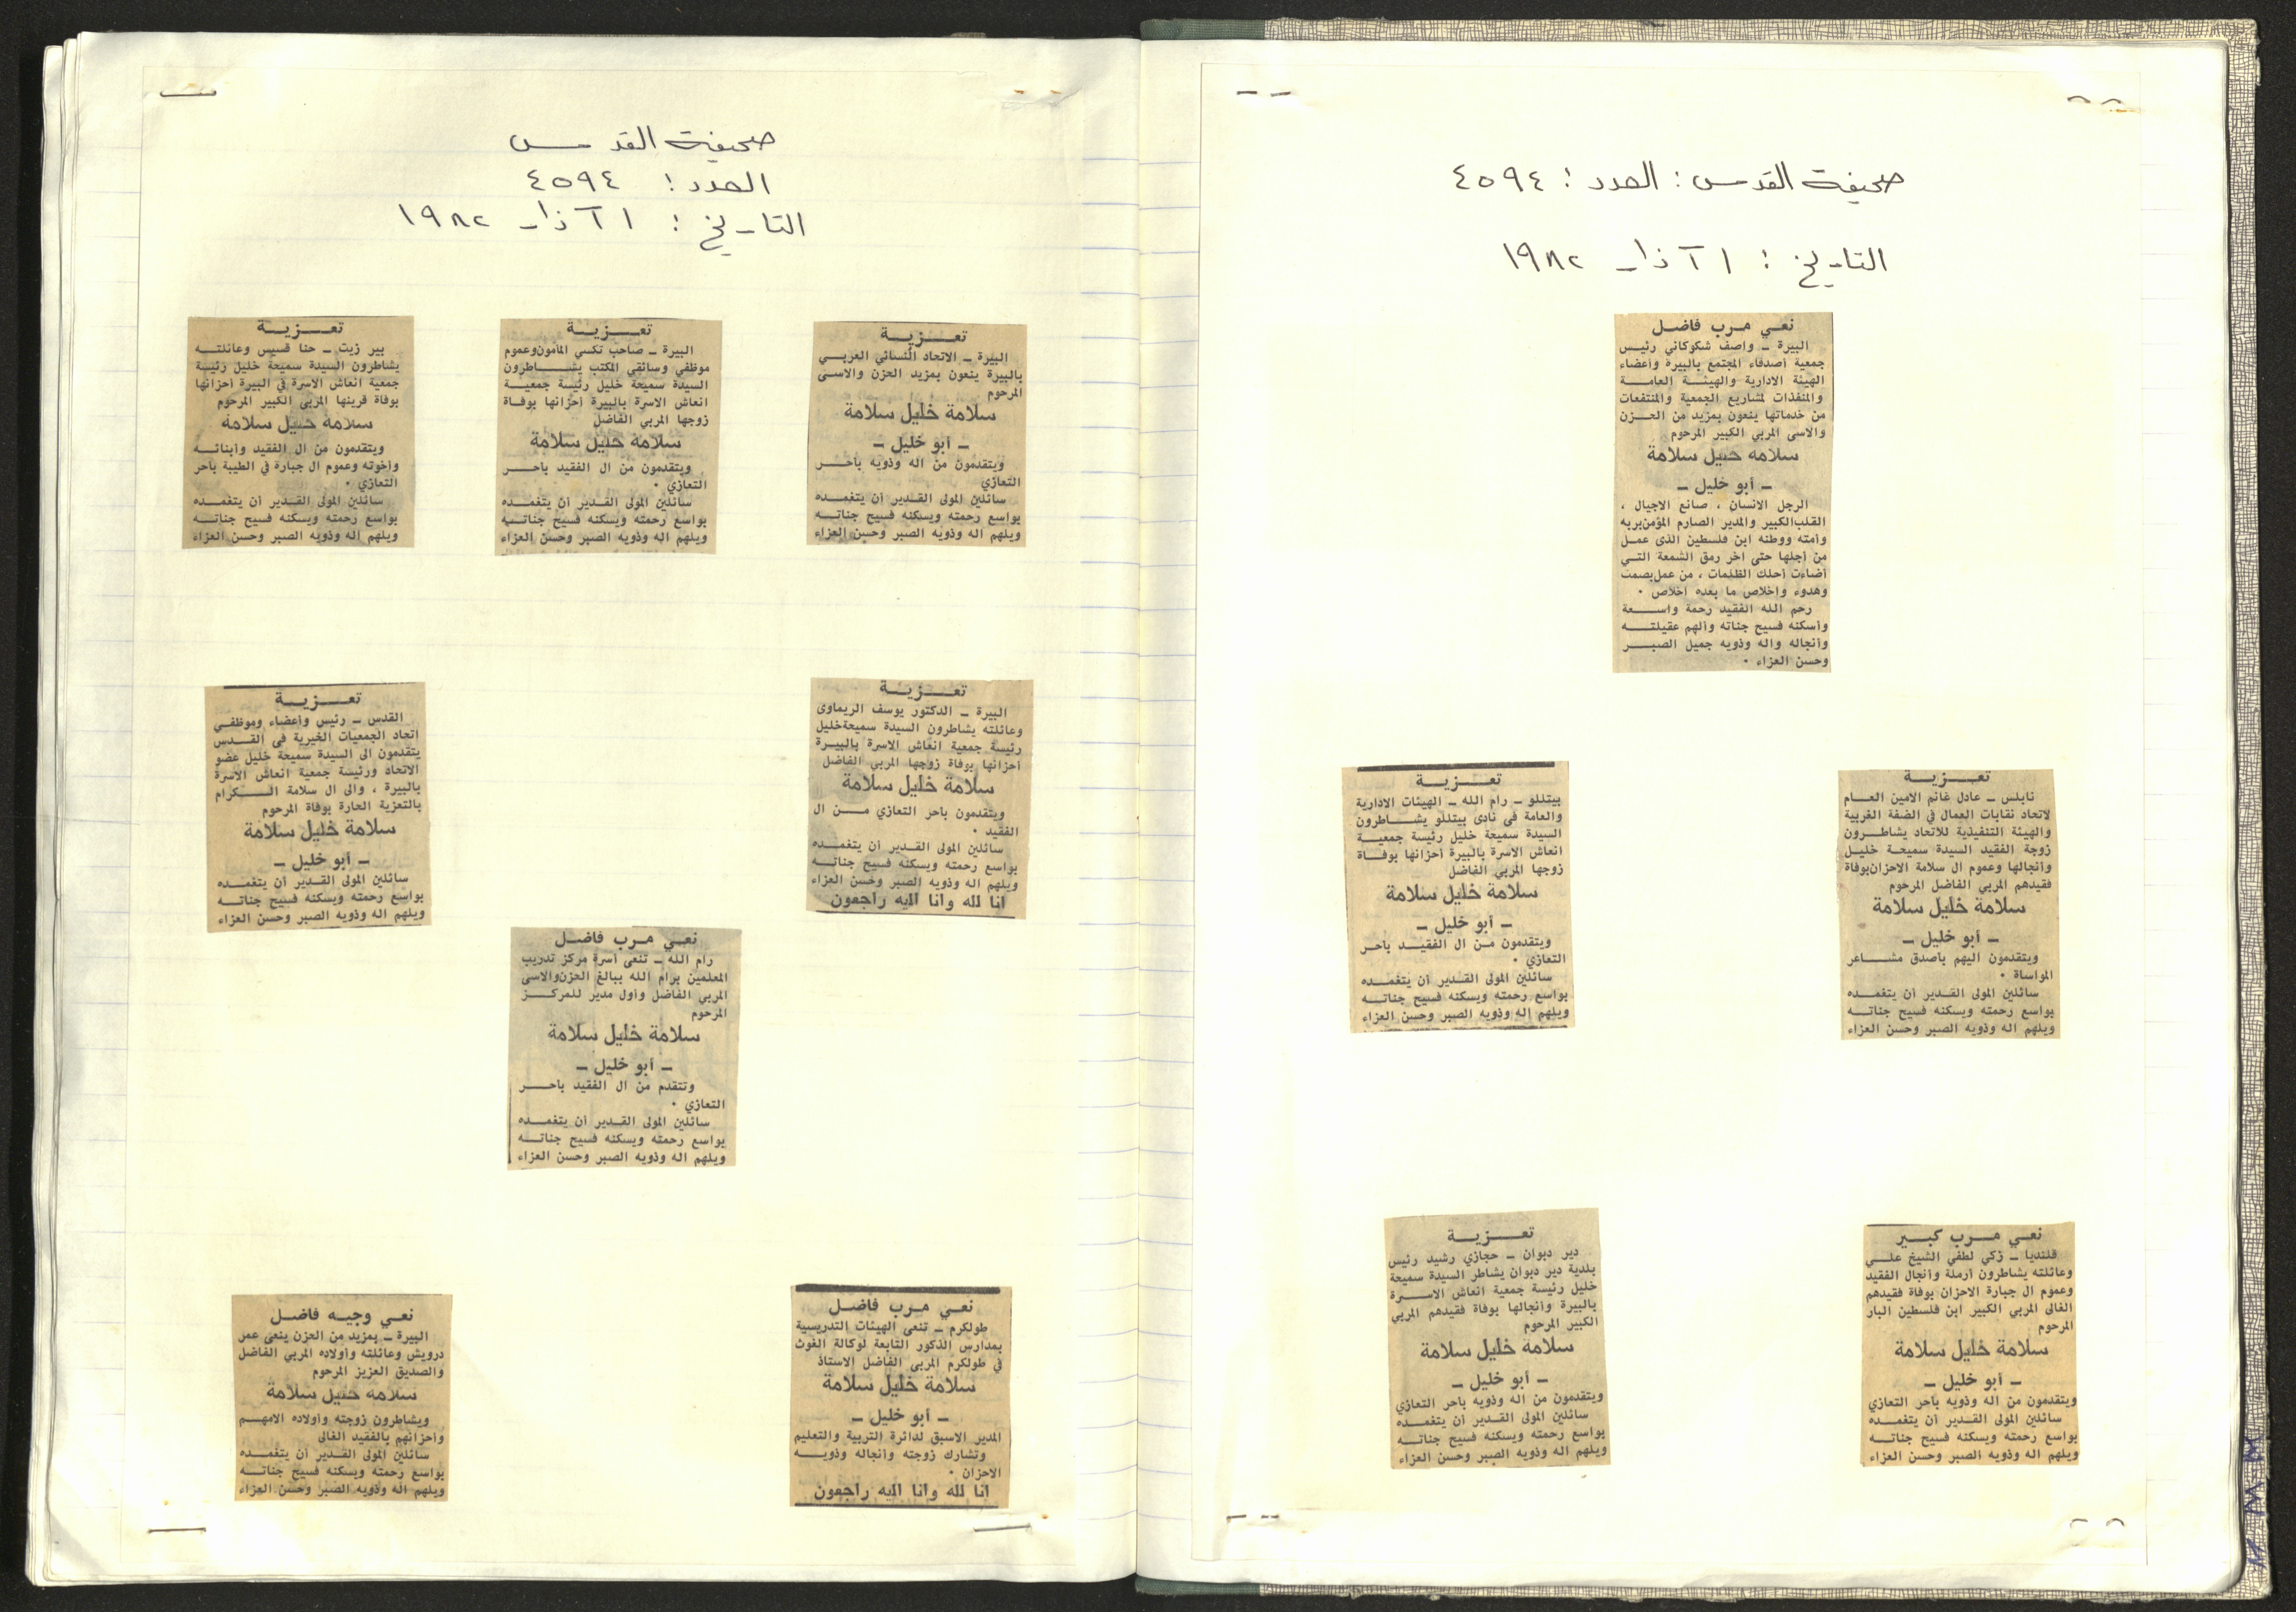 صحيفة القدس : العدد : ٤٥٩٤
التاريخ : ١ آذار ١٩٨٢
نعي مرب فاضل
البيرة – واصف شكوكاني رئيس
جمعية أصدقاء المجتمع بالبيرة وأعضاء
الهيئة الادارية والهيئة العامة
والمنفذات لمشاريع الجمعية والمنتفعات
من خدماتها ينعون بمزيد من الحزن
والاسى المربي الكبير المرحوم
سلامة خليل سلامة
– أبو خليل –
الرجل الانسان ، صانع الاجيال ،
القلب الكبير والمدير الصارم المؤمن بربه
وأمته ووطنه ابن فلسطين الذى عمل
من أجلها حتى اخر رمق الشمعة التي
أضاءت أحلك الظلمات ، من عمل بصمت
وهدوء واخلاص ما بعده اخلاص .
رحم الله الفقيد رحمة واسعة
وأسكنه فسيح جناته وألهم عقيلته
وأنجاله واله وذويه جميل الصبر
وحسن العزاء .
تعزية
نابلس – عادل غانم الامين العام
لاتحاد نقابات العمال في الضفة الغربية
والهيئة التنفيذية للاتحاد يشاطرون
زوجة الفقيد السيدة سميحة خليل
وأنجالها وعموم ال سلامة الاحزان بوفاة
فقيدهم المربي الفاضل المرحوم
سلامة خليل سلامة
– أبو خليل –
ويتقدمون اليهم بأصدق مشاعر
المواساة .
سائلين المولى القدير أن يتغمده
بواسع رحمته ويسكنه فسيح جناته
ويلهم اله وذويه الصبر وحسن العزاء
تعزية
بيتللو – رام الله – الهيئات الادارية
والعامة في نادى بيتللو يشاطرون
السيدة سميحة خليل رئيسة جمعية
انعاش الاسرة بالبيرة أحزانها بوفاة
زوجها المربي الفاضل
سلامة خليل سلامة
– أبو خليل –
ويتقدمون من ال الفقيد باحر
التعازي .
سائلين المولى القدير أن يتغمده
بواسع رحمته ويسكنه فسيح جناته
ويلهم اله وذويه الصبر وحسن العزاء
نعي مرب كبير
قلنديا – زكي لطفي الشيخ علي
وعائلته يشاطرون أرملة وأنجال الفقيد
وعموم ال جبارة الاحزان بوفاة فقيدهم
الغالى المربي الكبير ابن فلسطين البار
المرحوم
سلامة خليل سلامة
– أبو خليل –
ويتقدمون من اله وذويه بأحر التعازي
سائلين المولى القدير أن يتغمده
بواسع رحمته ويسكنه فسيح جناته
ويلهم اله وذويه الصبر وحسن العزاء
تعزية
دير دبوان – حجازي رشيد رئيس
بلدية دير دبوان يشاطر السيدة سميحة
خليل رئيسة جمعية انعاش الاسرة
بالبيرة وأنجالها بوفاة فقيدهم المربي
الكبير المرحوم
سلامة خليل سلامة
– أبو خليل –
ويتقدمون من اله وذويه باحر التعازي
سائلين المولى القدير أن يتغمده
بواسع رحمته ويسكنه فسيح جناته
ويلهم اله وذويه الصبر وحسن العزاء
صحيفة القدس
العدد : ٤٥٩٤
التاريخ : ١ آذار ١٩٨٢
تعزية
البيرة – الاتحاد النسائي العربي
بالبيرة ينعون بمزيد الحزن والاسى
المرحوم
سلامة خليل سلامة
– أبو خليل –
ويتقدمون من اله وذويه بأحر
التعازي
سائلين المولى القدير أن يتغمده
بواسع رحمته ويسكنه فسيح جناته
ويلهم اله وذويه الصبر وحسن العزاء
تعزية
البيرة – صاحب تكسي المأمون وعموم
موظفي وسائقي المكتب يشاطرون
السيدة سميحة خليل رئيسة جمعية
انعاش الاسرة بالبيرة أحزانها بوفاة
زوجها المربي الفاضل
سلامة خليل سلامة
ويتقدمون من ال الفقيد باحر
التعازي .
سائلين المولى القدير أن يتغمده
بواسع رحمته ويسكنه فسيح جناته
ويلهم اله وذويه الصبر وحسن العزاء
تعزية
بير زيت – حنا قسيس وعائلته
يشاطرون السيدة سميحة خليل رئيسة
جمعية انعاش الاسرة في البيرة أحزانها
بوفاة قرينها المربي الكبير المرحوم
سلامة خليل سلامة
ويتقدمون من ال الفقيد وأبنائه
وأخوته وعموم ال جبارة في الطيبة بأحر
التعازي .
سائلين المولى القدير أن يتغمده
بواسع رحمته ويسكنه فسيح جناته
ويلهم اله وذويه الصبر وحسن العزاء
تعزية
البيرة – الدكتور يوسف الريماوى
وعائلته يشاطرون السيدة سميحة خليل
رئيسة جمعية انعاش الاسرة بالبيرة
أحزانها بوفاة زوجها المربي الفاضل
سلامة خليل سلامة
ويتقدمون باحر التعازي من ال
الفقيد .
سائلين المولى القدير أن يتغمده
بواسع رحمته ويسكنه فسيح جناته
ويلهم اله وذويه الصبر وحسن العزاء
انا لله وانا اليه راجعون
تعزية
القدس – رئيس وأعضاء وموظفي
اتحاد الجمعيات الخيرية في القدس
يتقدمون الى السيدة سميحة خليل عضو
الاتحاد ورئيسة جمعية انعاش الاسرة
بالبيرة ، والى ال سلامة الكرام
بالتعزية الحارة بوفاة المرحوم
سلامة خليل سلامة
– أبو خليل –
سائلين المولى القدير أن يتغمده
بواسع رحمته ويسكنه فسيح جناته
ويلهم اله وذويه الصبر وحسن العزاء
نعي مرب فاضل
رام الله – تنعى أسرة مركز تدريب
المعلمين برام الله ببالغ الحزن والاسى
المربي الفاضل وأول مدير للمركز
المرحوم
سلامة خليل سلامة
– أبو خليل –
وتتقدم من ال الفقيد باحر
التعازي .
سائلين المولى القدير أن يتغمده
بواسع رحمته ويسكنه فسيح جناته
ويلهم اله وذويه الصبر وحسن العزاء
نعي مرب فاضل
طولكرم – تنعى الهيئات التدريسية
بمدارس الذكور التابعة لوكالة الغوث
في طولكرم المربي الفاضل الاستاذ
سلامة خليل سلامة
– أبو خليل –
المدير الاسبق لدائرة التربية والتعليم
وتشارك زوجته وأنجاله وذويه
الاحزان .
انا لله وانا اليه راجعون
نعي وجيه فاضل
البيرة – بمزيد من الحزن ينعى عمر
درويش وعائلته وأولاده المربي الفاضل
والصديق العزيز المرحوم
سلامة خليل سلامة
ويشاطرون زوجته وأولاده الامهم
وأحزانهم بالفقيد الغالى
سائلين المولى القدير أن يتغمده
بواسع رحمته ويسكنه فسيح جناته
ويلهم اله وذويه الصبر وحسن العزاء